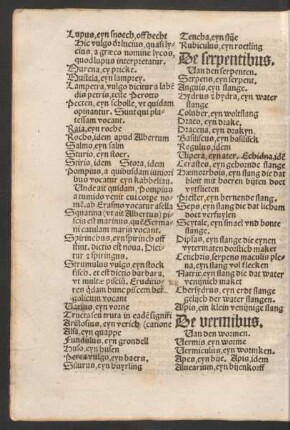 Lupus, eyn snoech, oft hecht
Hic vulgo dr̄ lucius, quasi ly-
cius, a græco nomine lycos,
quod lupus interpretatur.
Murena, ey pricke.
Mustela, eyn lamprey.
Lampetra, vulgo dicitur a lābē
dis petris, teste
Pecten, eyn scholle, vt quidam
opinantur. Sunt qui pla-
tesam vocant.
Raia, eyn roche
Rocho, idem apud Albertum
Salmo, eyn salm
Sturio, eyn stoer.
Stiria, idem Stora, idem
Pompilus, a quibusdam iuniori
bus vocatur eyn kabbeliau.
Unde ait quidam, Pompilus
a tumido venit cui corpore no
mē. ab Erasmo vocatur asellꝰ
Squatina (vt ait Albertus) pi-
scis est marinus, quē Germa
ni catulum maris vocant.
Spirinchus, eyn spirinck oft
stint. dictio est noua. Dici-
tur & spiringus.
Strumulus vulgo, eyn stock
fisch. et est dictio barbara,
vt multe pisciū. Erudito-
res q̄dam hunc piscem ber-
galicum vocant
Varius, eyn vorne
Trute a seu truta in eadē signifi
Aristosius, eyn verich (catione
Alsa, eyn quappe
Fundulus, eyn grondell
Huso, eyn husen
Perca vulgo, eyn baers.
Silurus, eyn buyrling
Tencha, eyn slye
Rubiculus, eyn roetling
De serpentibus.
Van den serpenten.
Serpens, eyn serpent,
Anguis, eyn slange.
Hydrus & hydra, eyn water
slange
Coluber, eyn wolslang
Draco, eyn drake,
Dracena, eyn drakyn.
Basiliscus, eyn basilick
Regulus, idem
Vipera, eyn ater. Echidna, idē
Cerastes, eyn gehornde slange
Hæmorrhois, eyn slang die dat
bloet mit boeren bijten doet
vytflieten
Prester, eyn bernende slange.
Seps, eyn slang die dat licham
doet verfuylen
Scytale, eyn smael vnd bonte
slange.
Dipsas, eyn slang die eynen
vytermaten dorstich maket
Cenchris, serpens maculis ple-
na, eyn slang vol flecken
Natrix, eyn slang die dat water
venijnich maket
Chersydrus, eyn erde slange
gelijch der water slangen.
Aspis, ein klein venijnige slang
De vermibus.
Van den wormen.
Vermis, eyn worme
Vermiculus, eyn wormken.
Apes, eyn bije. Apis, idem
Alvearium, eyn bijenkorff